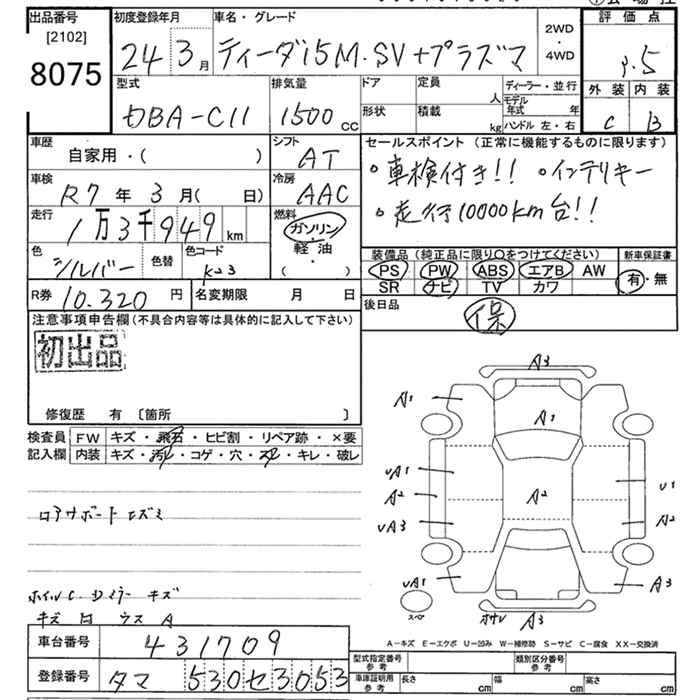 出品番号
[2102]
8075
初度登録年月
24 3月
車名・グレード
ティーダ15M.SV+プラズマ
2WD
・
4WD
評価点
3.5
外装 内装
C B
型式
DBA-C11
排気量
1500 cc
ドア
定員
人
形状
積載
kg
ディーラー・並行
モデル年式 年
ハンドル 左・右
車歴
自家用・( )
シフト
AT
車検
R7年 3月( 日)
冷房
AAC
走行
1万3千949 km
燃料
ガソリン
軽・油
( )
色
シルバー
色替
色コード
K23
R券 10.320円
名変期限 月 日
セールスポイント(正常に機能するものに限ります)
・車検付き!! ・インテリキー
・走行10000km台!!
装備品(純正品に限り○をつけてください)
PS PW ABS エアB AW
SR ナビ TV カワ
新車保証書
有・無
後日品
保
注意事項申告欄(不具合内容等は具体的に記入して下さい)
初出品
修復歴 有 〔箇所 〕
検査員記入欄
FW キズ・飛石・ヒビ割・リペア跡・×要
内装 キズ・汚れ・コゲ・穴・スレ・キレ・破レ
ホイルC キズ
A3
A1
A1
UA1
A2
UA3
A2
U1
A2
UA1
A3
スペア
A3
A-キズ E-エクボ U-凹み W-補修跡 S-サビ C-腐食 XX-交換済
車台番号 431709
登録番号 タマ 530セ3053
型式指定番号 参考
類別区分番号 参考
車庫証明用 参考
長さ cm
幅 cm
高さ cm